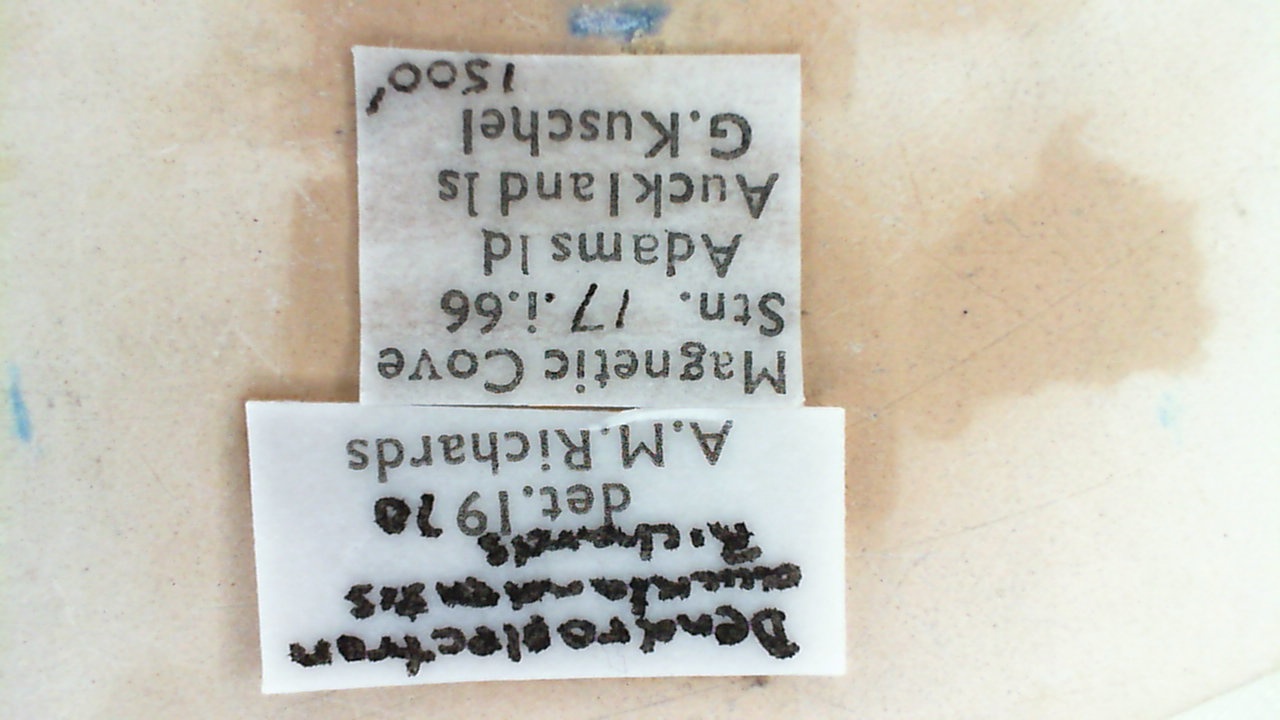 Dendroplectron
aucklandensis
Richards
det.1970
A.M.Richards
Magnetic Cove
Stn. 17.i.66
Adams Id
Auckland Is
G.Kuschel
1500'